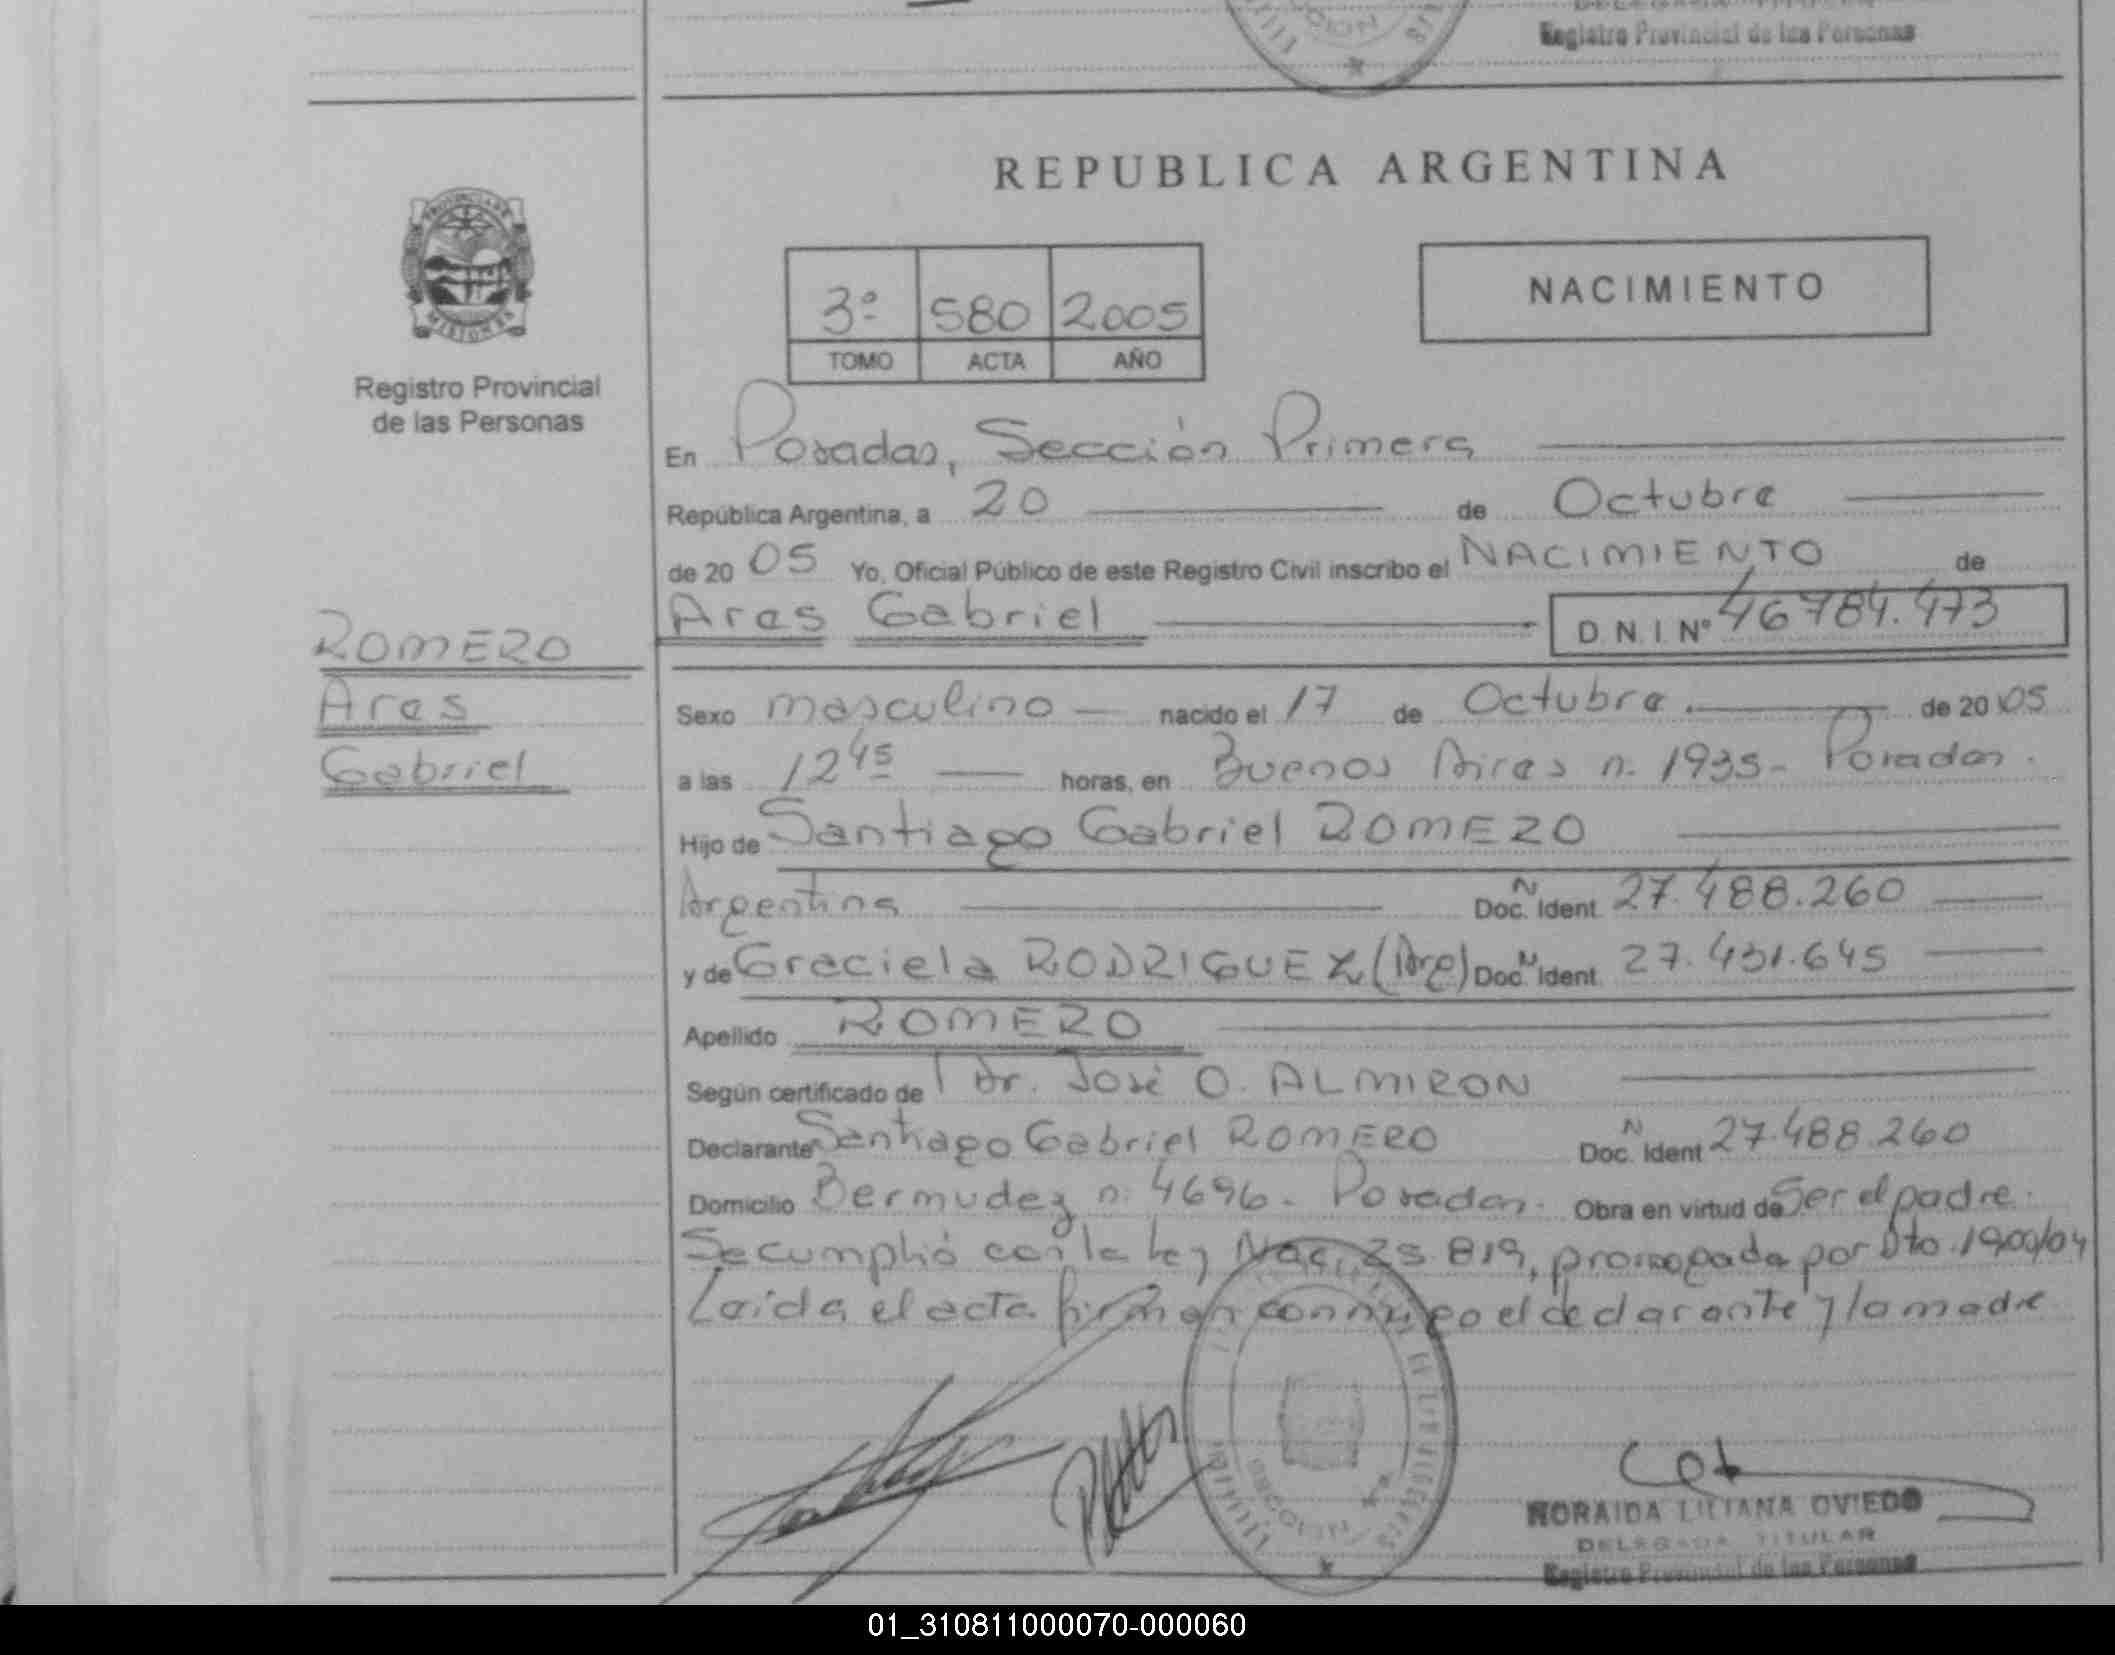 Registro Provincial de las Personas
REPUBLICA ARGENTINA
PROVINCIA DE
MISIONES
Registro Provincial
de las Personas
3º 580 2005
TOMO ACTA AÑO
NACIMIENTO
En Posadas, Sección Primera
República Argentina, a 20 de Octubre
de 20 05 Yo, Oficial Público de este Registro Civil inscribo el NACIMIENTO de
Ares Gabriel D.N.I. Nº 46784.473
ROMERO
Ares
Gabriel
Sexo masculino nacido el 17 de Octubre de 20 05
a las 12 45 horas, en Buenos Aires n. 1935 - Posadas.
Hijo de Santiago Gabriel ROMERO
Argentina Doc. N Ident. 27.488.260
y de Graciela RODRIGUEZ (Arg) Doc. N Ident. 27.431.645
Apellido ROMERO
Según certificado de Dr. José O. ALMIRON
Declarante Santiago Gabriel ROMERO Doc. N Ident 27.488.260
Domicilio Bermudez n. 4696 - Posadas. Obra en virtud de Ser el padre.
Se cumplió con la Ley Nac. 25.819, por Dto. 1900/04
Leída el acta firman conmigo el declarante y la madre
NORAIDA LILIANA OVIEDO
DELEGADA TITULAR
Registro Provincial de las Personas
01_310811000070-000060